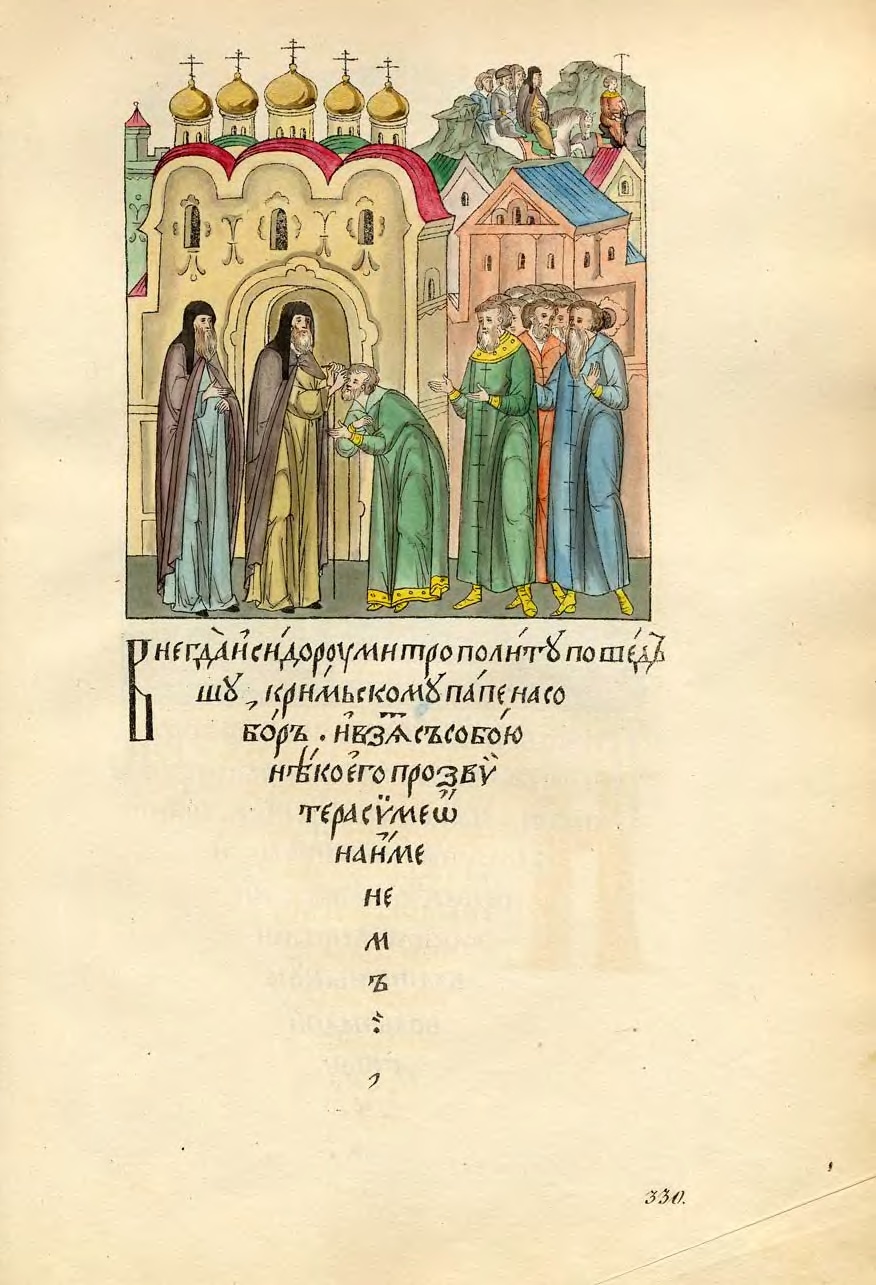 Внегда̀ и҆си́дороу митрополи́тꙋ поше́дъ
шꙋ , кри́мьскомꙋ па́пе на со
бо́ръ . и҆ взѧ́ съ собо́ю
нѣ́коего прозвѵ̈
тера сѵ̈меѡ҆
на и҆ме
не
м
ъ
330.